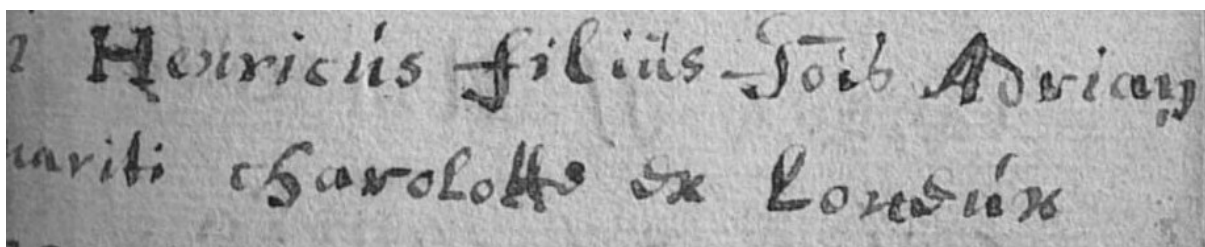 Henricus filius Jois Adriani
mariti charolotte ex Londun